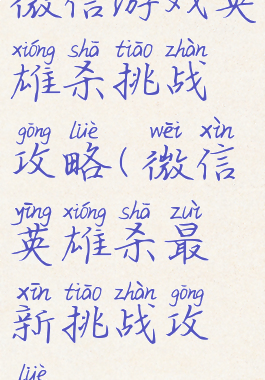 微信游戏英
xióng shā tiāo zhàn
雄杀挑战
gōng lüè wēi xìn
攻略(微信
yīng xióng shā zuì
英雄杀最
xīn tiāo zhàn gōng
新挑战攻
lüè